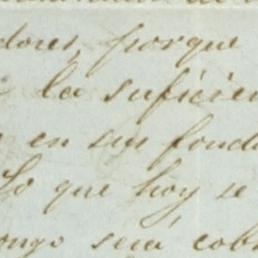 dores, porque
la suficien
en sus fonda
Lo que hoy se
ongo será cob